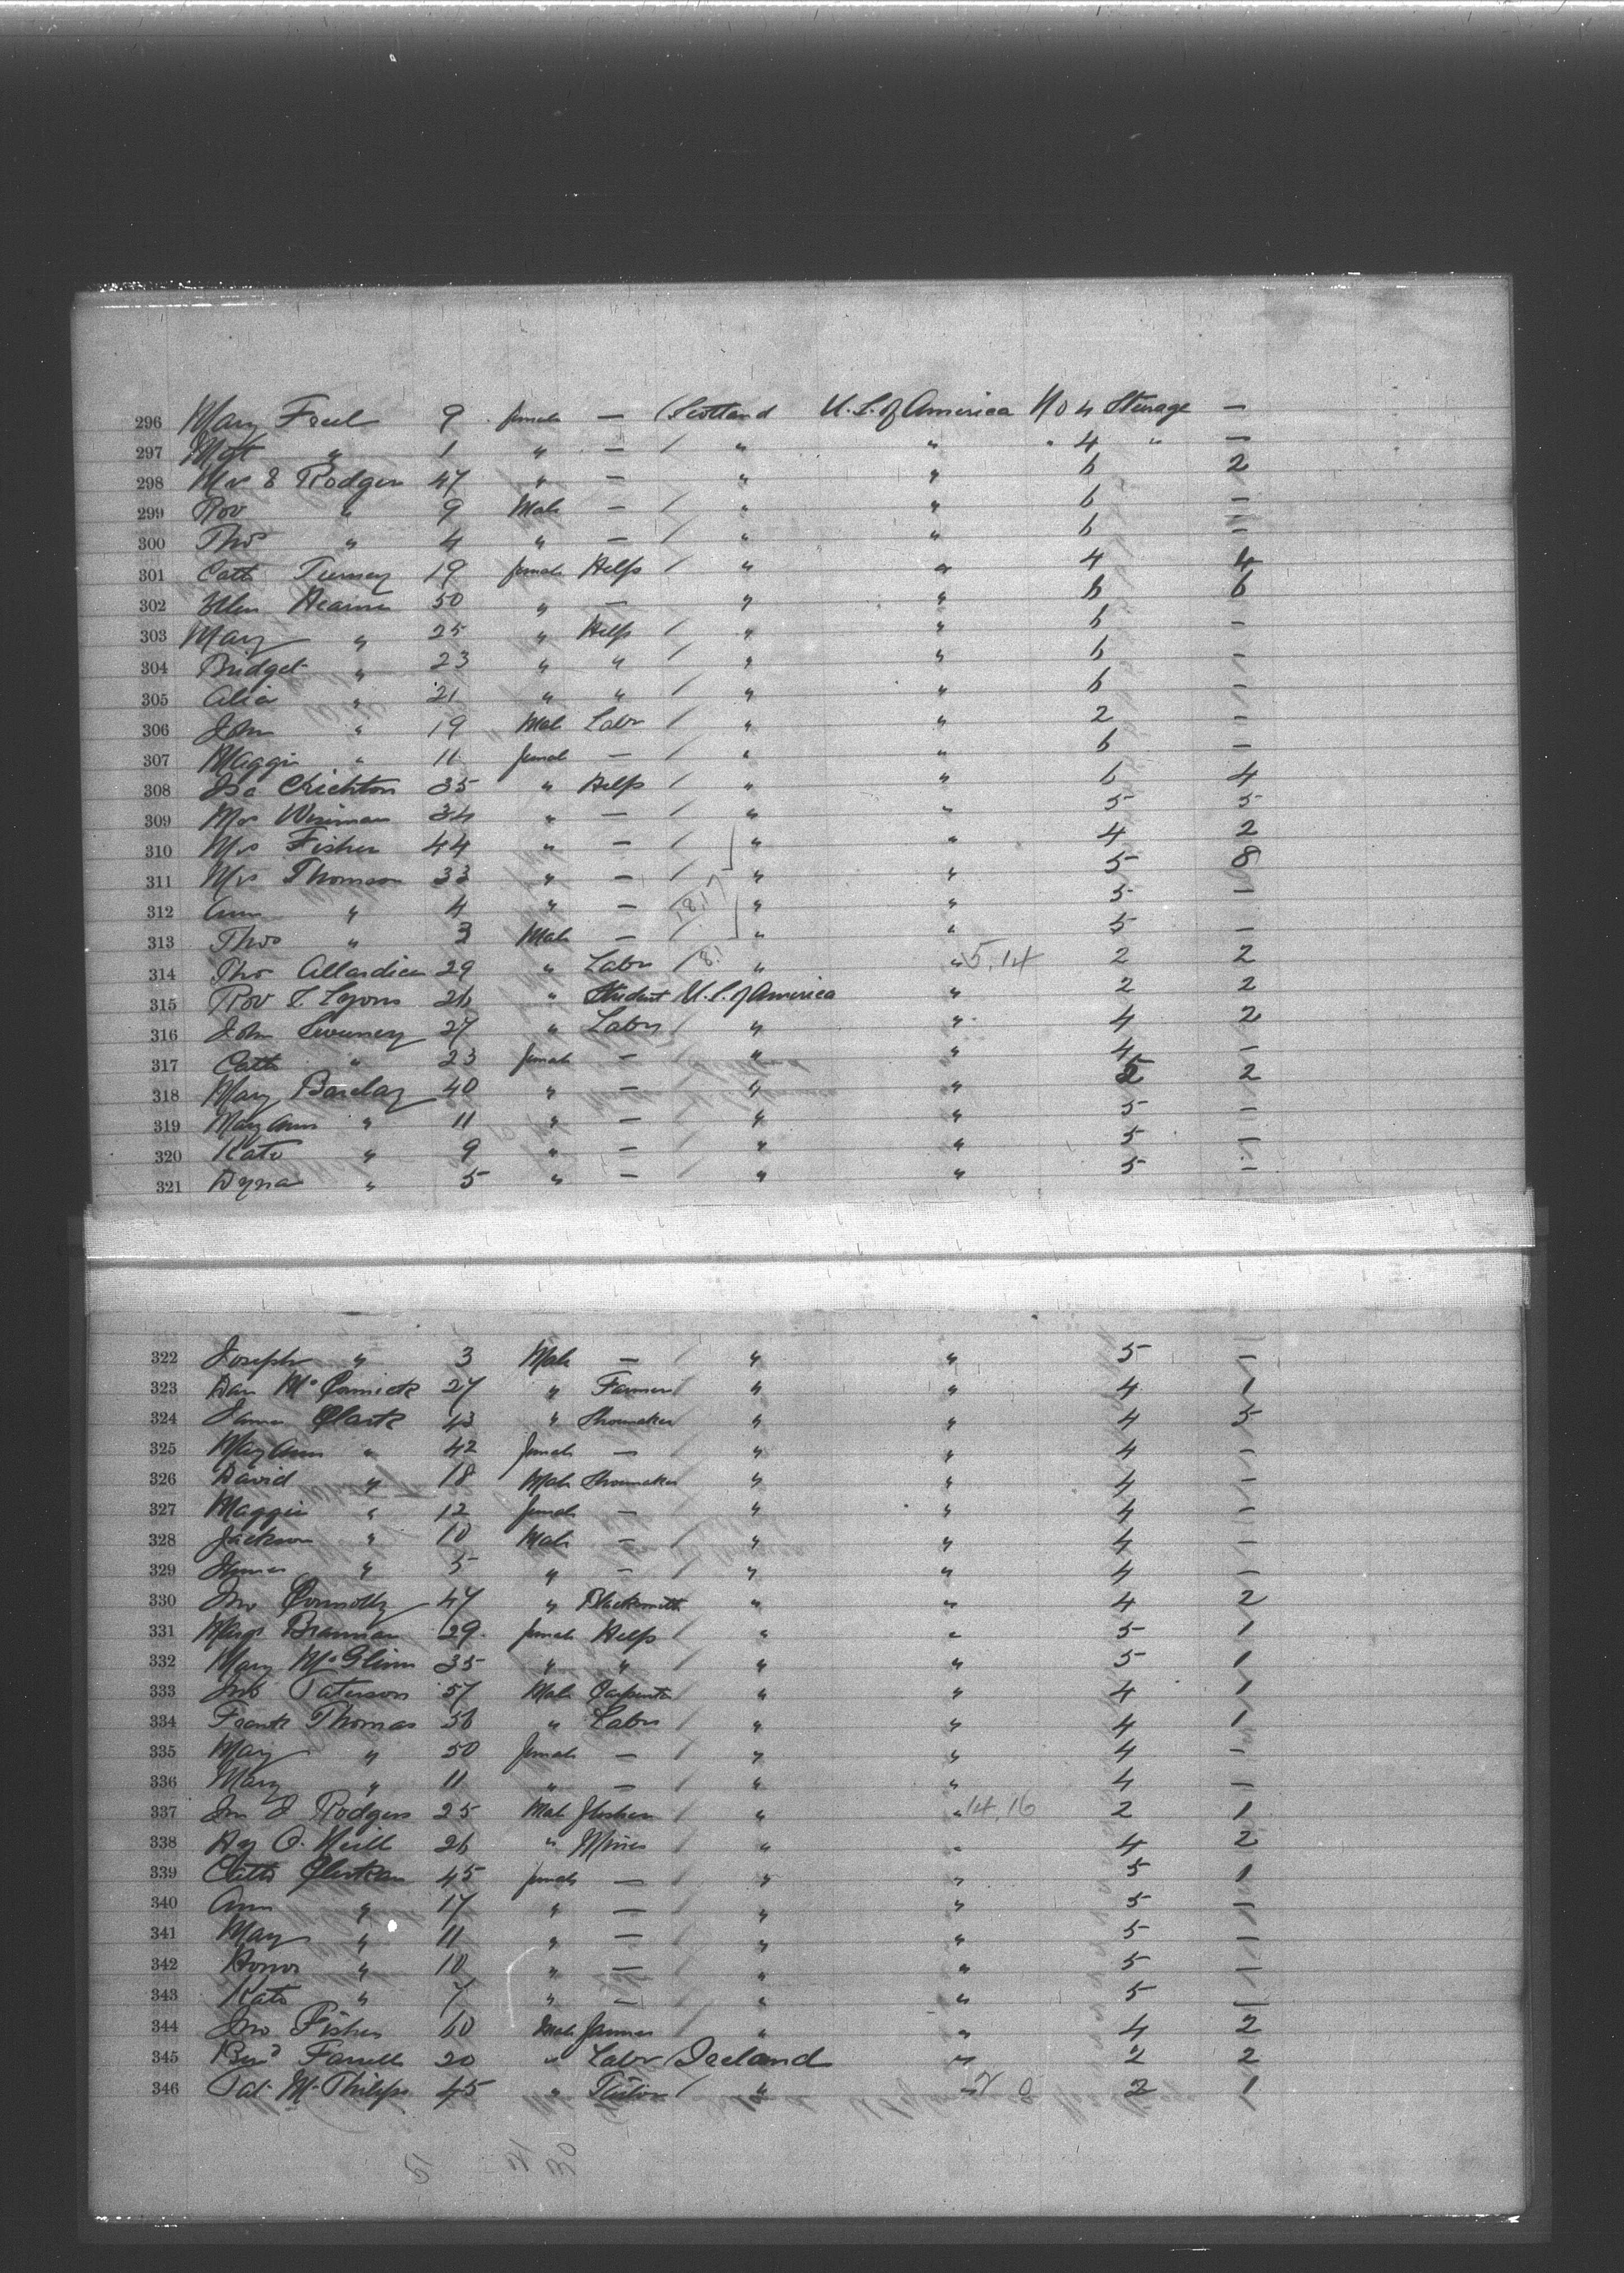 296 Mary Freel 9 female — Scotland U.S. of America No 4 Sterage —
297 " 1 " — / " " " 4 " —
298 Mrs E Rodgers 47 " — " " 6 2
299 Rov " 9 Male — / " " 6 —
300 Thos " 4 " — / " " 6 —
301 Cath Tierney 19 female Help / " " 4 4
302 Ellen Hearn 50 " — " " 6 6
303 Mary " 25 " Help / " " 6 —
304 Bridget " 23 " " / " " 6 —
305 Alice " 21 " " / " " 6 —
306 John " 19 Male Labr / " " 2 —
307 Maggie " 11 female — / " " 6 —
308 Isa Crichton 35 " Help / " " 6 4
309 Mrs Wiseman 34 " — / " " 5 5
310 Mrs Fisher 44 " — / " " 4 2
311 Mrs Thomson 33 " — / " " 5 8
312 Ann " 4 " — " " 5 —
313 Thos " 3 Male — / " " 5 —
314 Thos Allardice 29 " Labr / " " 5.14 2 2
315 Rov S. Lyons 26 " Student U.S. of America " 2 2
316 John Sweeney 27 " Labr / " " 4 2
317 Cath " 23 female — / " " 4 —
318 Mary Barclay 40 " — / " " 5 2
319 Mary Ann " 11 " — / " " 5 —
320 Kate " 9 " — / " " 5 —
321 Dyna " 5 " — / " " 5 —
322 Joseph " 3 Male — / " " 5 —
323 Dan McCormick 27 " Farmer / " " 4 1
324 James Clark 43 " Shoemaker " " 4 5
325 Mary Ann " 42 female — / " " 4 —
326 David " 18 Male Shoemaker " " 4 —
327 Maggie " 12 female — / " " 4 —
328 Jackson " 10 Male — / " " 4 —
329 James " 5 " — / " " 4 —
330 Jno Connolly 47 " Blacksmith " " 4 2
331 Margt Brannan 29 female Help / " " 5 1
332 Mary McGlinn 35 " " / " " 5 1
333 Paterson 57 Male Carpenter " " 4 1
334 Frank Thomas 56 " Labr / " " 4 1
335 Mary " 50 female — / " " 4 —
336 Mary " 11 " — / " " 4 —
337 Jno J Rodgers 25 Male / " " 14.16 2 1
338 Hy O. Neill 26 " Miner / " " 4 2
339 Cath 45 female — / " " 5 1
340 Ann " 17 " — / " " 5 —
341 Mary " 11 " — / " " 5 —
342 Honor " 10 " — / " " 5 —
343 Kate " 7 " — / " " 5 —
344 Jno Fisher 60 Male Farmer / " " 4 2
345 Bernd Farrell 20 " Labr / Ireland " 2 2
346 Pat McPhilips 45 " Tailor / " " 2 1